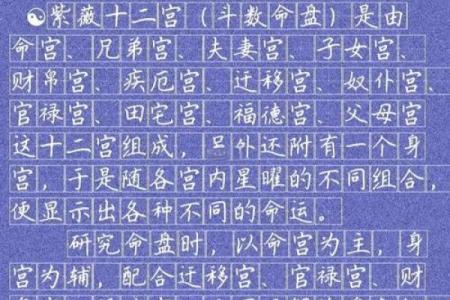 ☯紫薇十二宫（斗数命盘）是由
命宫、兄弟宫、夫妻宫、子女宫、
财帛宫、疾厄宫、迁移宫、奴仆宫、
官禄宫、田宅宫、福德宫、父母宫
这十二宫组成，另外还附有一个身
宫，于是随各宫内星曜的不同组合，
便显示出各种不同的命运。
研究命盘时，以命宫为主，身
宫为辅，配合迁移宫、官禄宫、财